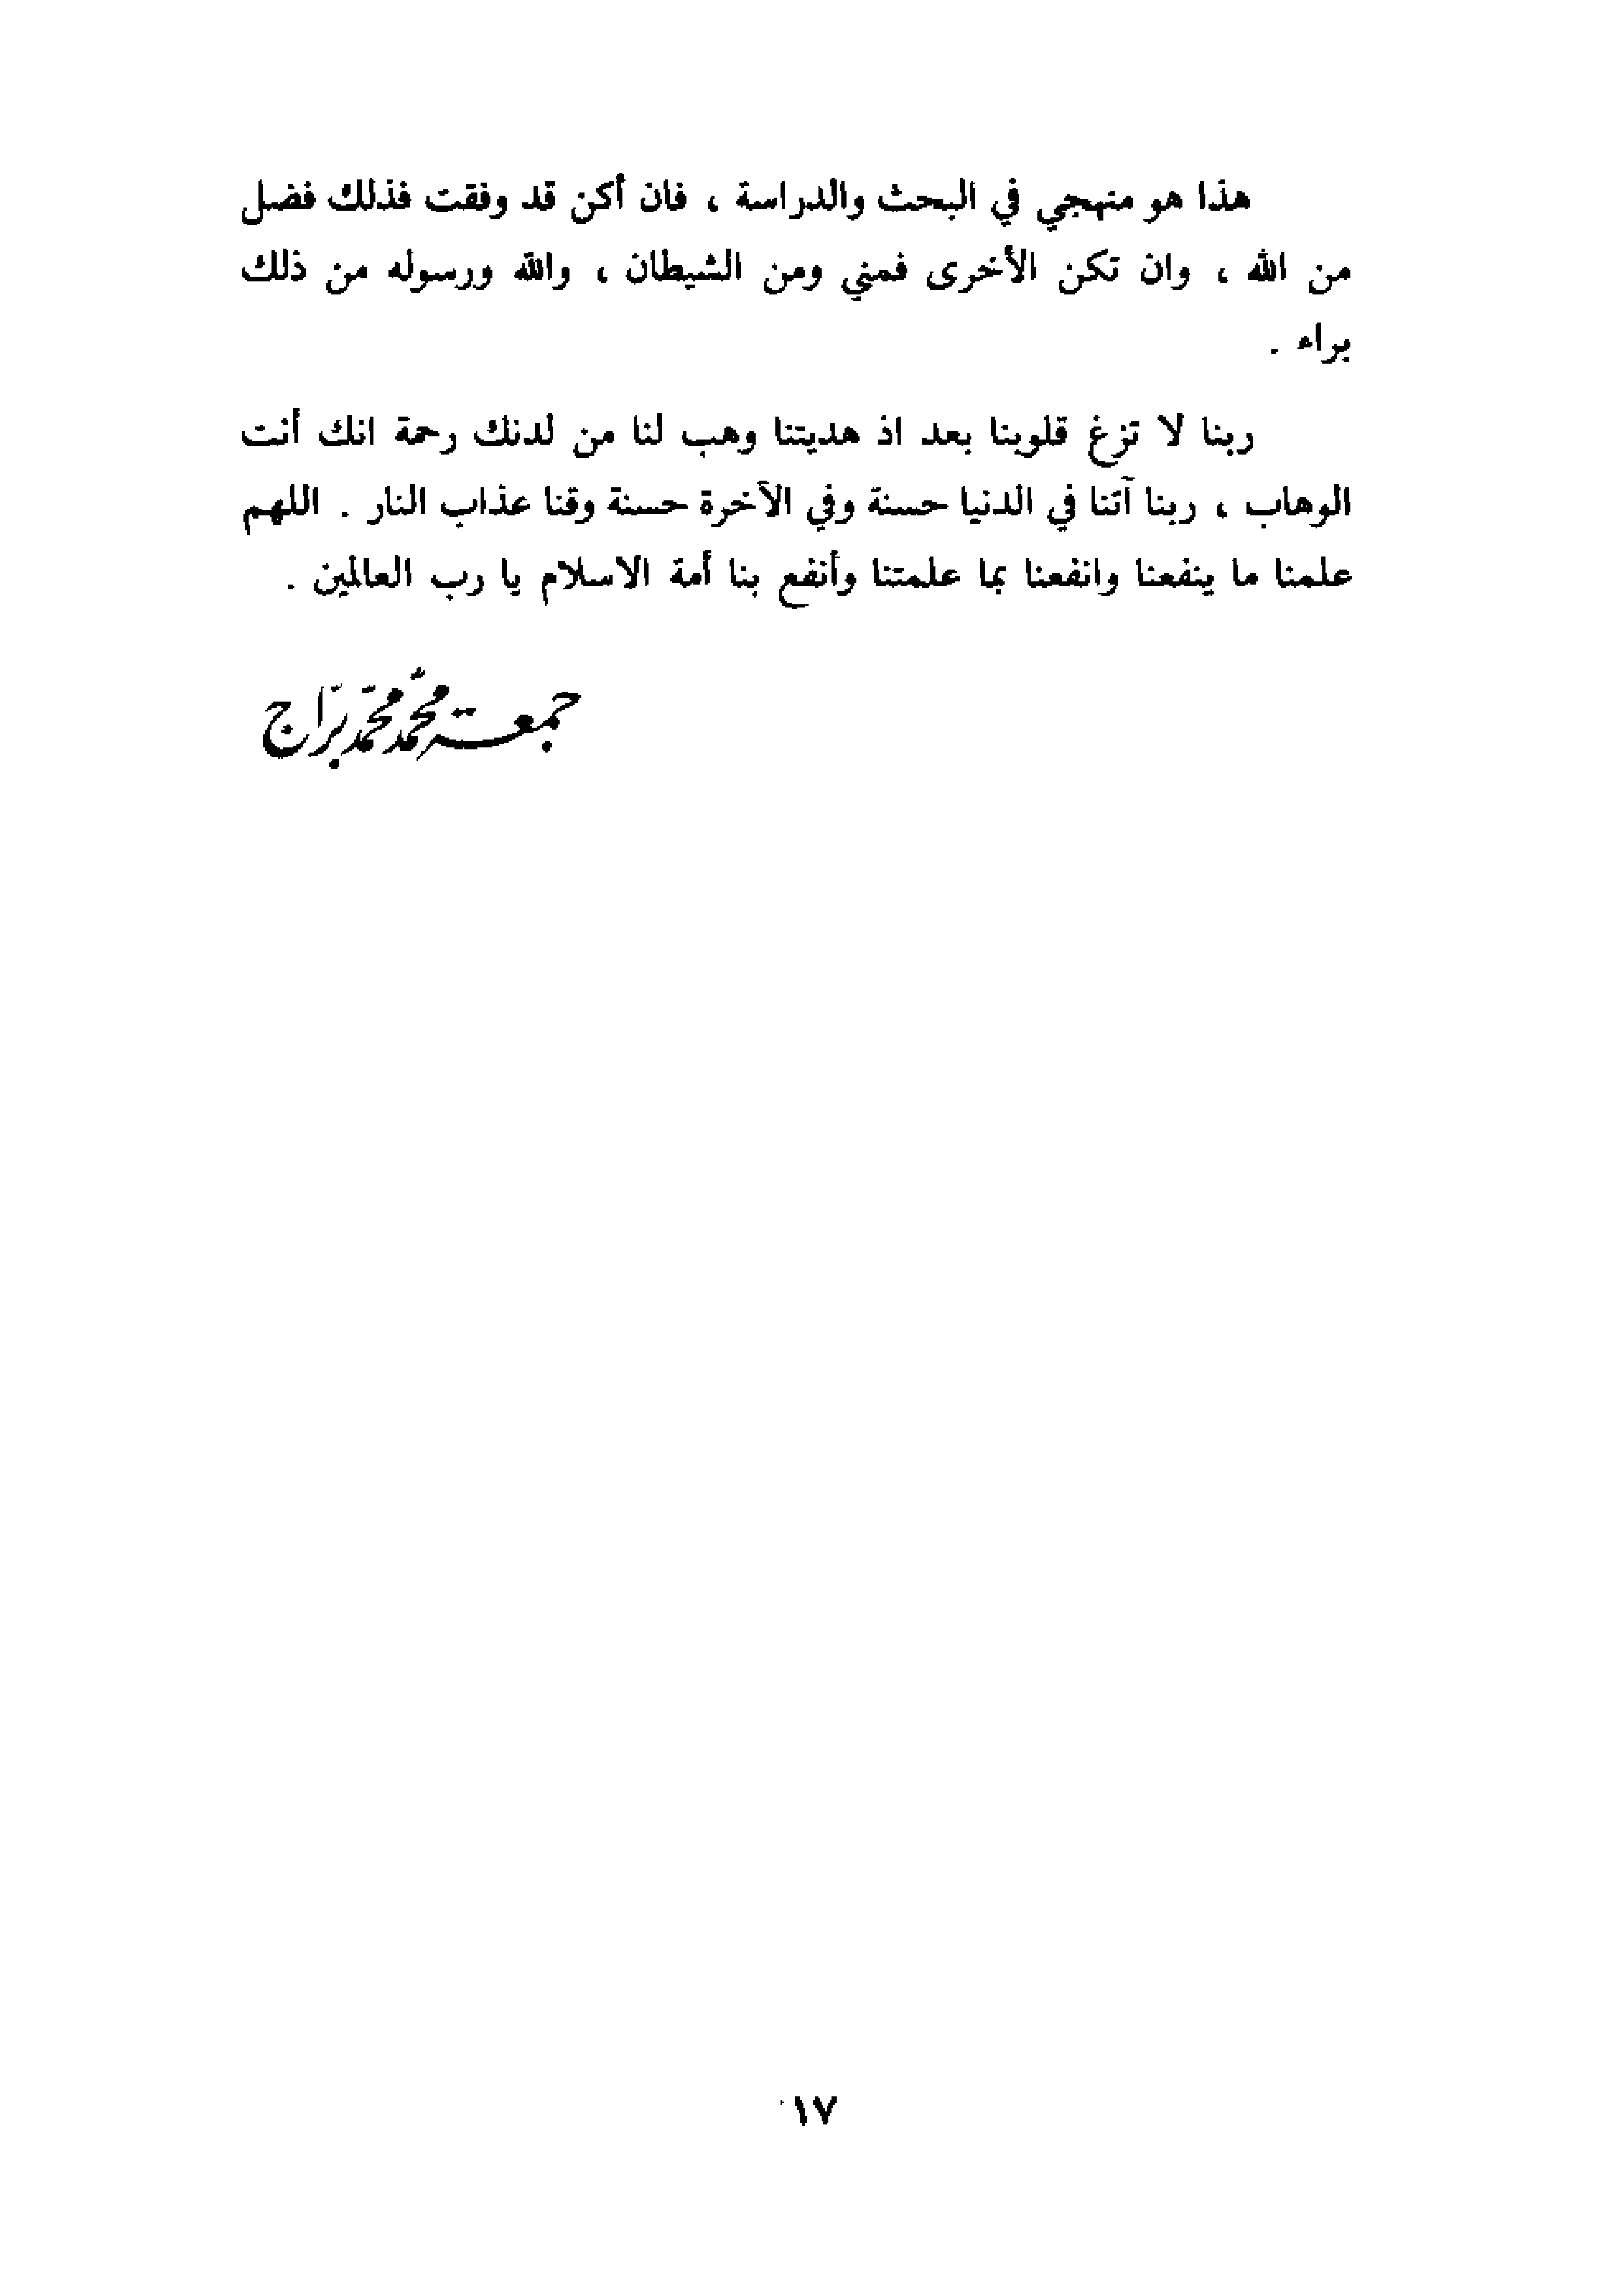 هذا هو منهجي في البحث والدراسة ، فان أكن قد وفقت فذلك فضل
من الله ، وان تكن الأخرى فمني ومن الشيطان ، والله ورسوله من ذلك
براء .
ربنا لا تزغ قلوبنا بعد اذ هديتنا وهب لنا من لدنك رحمة انك أنت
الوهاب ، ربنا آتنا في الدنيا حسنة وفي الآخرة حسنة وقنا عذاب النار . اللهم
علمنا ما ينفعنا وانفعنا بما علمتنا وأنفع بنا أمة الاسلام يا رب العالمين .
جمعة محمد محمد براج
١٧